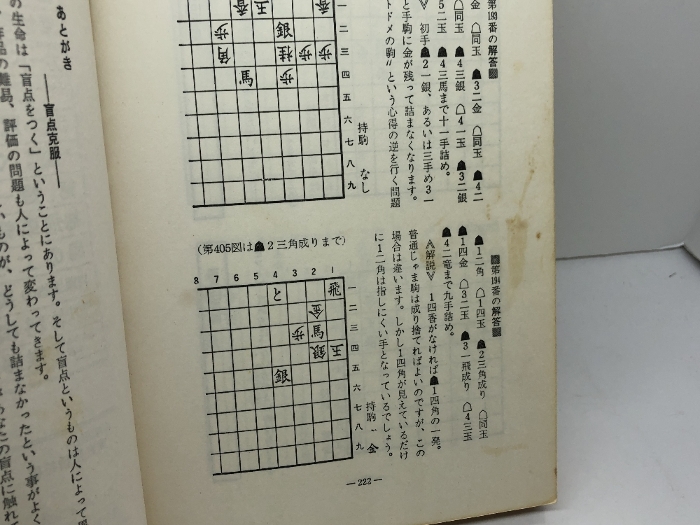 第193番の解答
金 ☖同玉 ☗3二金 ☖同玉 ☗4二
☖同玉 ☗4三銀 ☖4一玉 ☗3二銀
5二玉 ☗4三馬まで十一手詰め。
初手☗2一銀、あるいは三手め3一
と手駒に金が残って詰まなくなります。
トドメの駒〟という心得の逆を行く問題
一
二
三
四
五
六
七
八
九
玉
銀
歩
角
桂
歩
歩
馬
歩
持駒 なし
第194番の解答
☗1二角 ☖1四玉 ☗2三角成り ☖同玉
☗1四金 ☖3二玉 ☗3一飛成り ☖4三玉
☗4二竜まで九手詰め。
〈解説〉 1四香がなければ☗1四角の一発。
普通じゃま駒は成り捨てればよいのですが、この
場合は違います。しかし1四角が見えているだけ
に1二角は指しにくい手となっているでしょう。
(第405図は☗2三角成りまで)
8 7 6 5 4 3 2 1
一
二
三
四
五
六
七
八
九
と
飛
金
歩
馬
銀
玉
銀
持駒 金
―222―
あとがき
――盲点克服――
の生命は「盲点をつく」ということにあります。そして盲点というものは人によって
作品の難易、評価の問題も人によって変わってきます。
ものが、どうしても詰まなかったという事がよく
なたの盲点に触れて